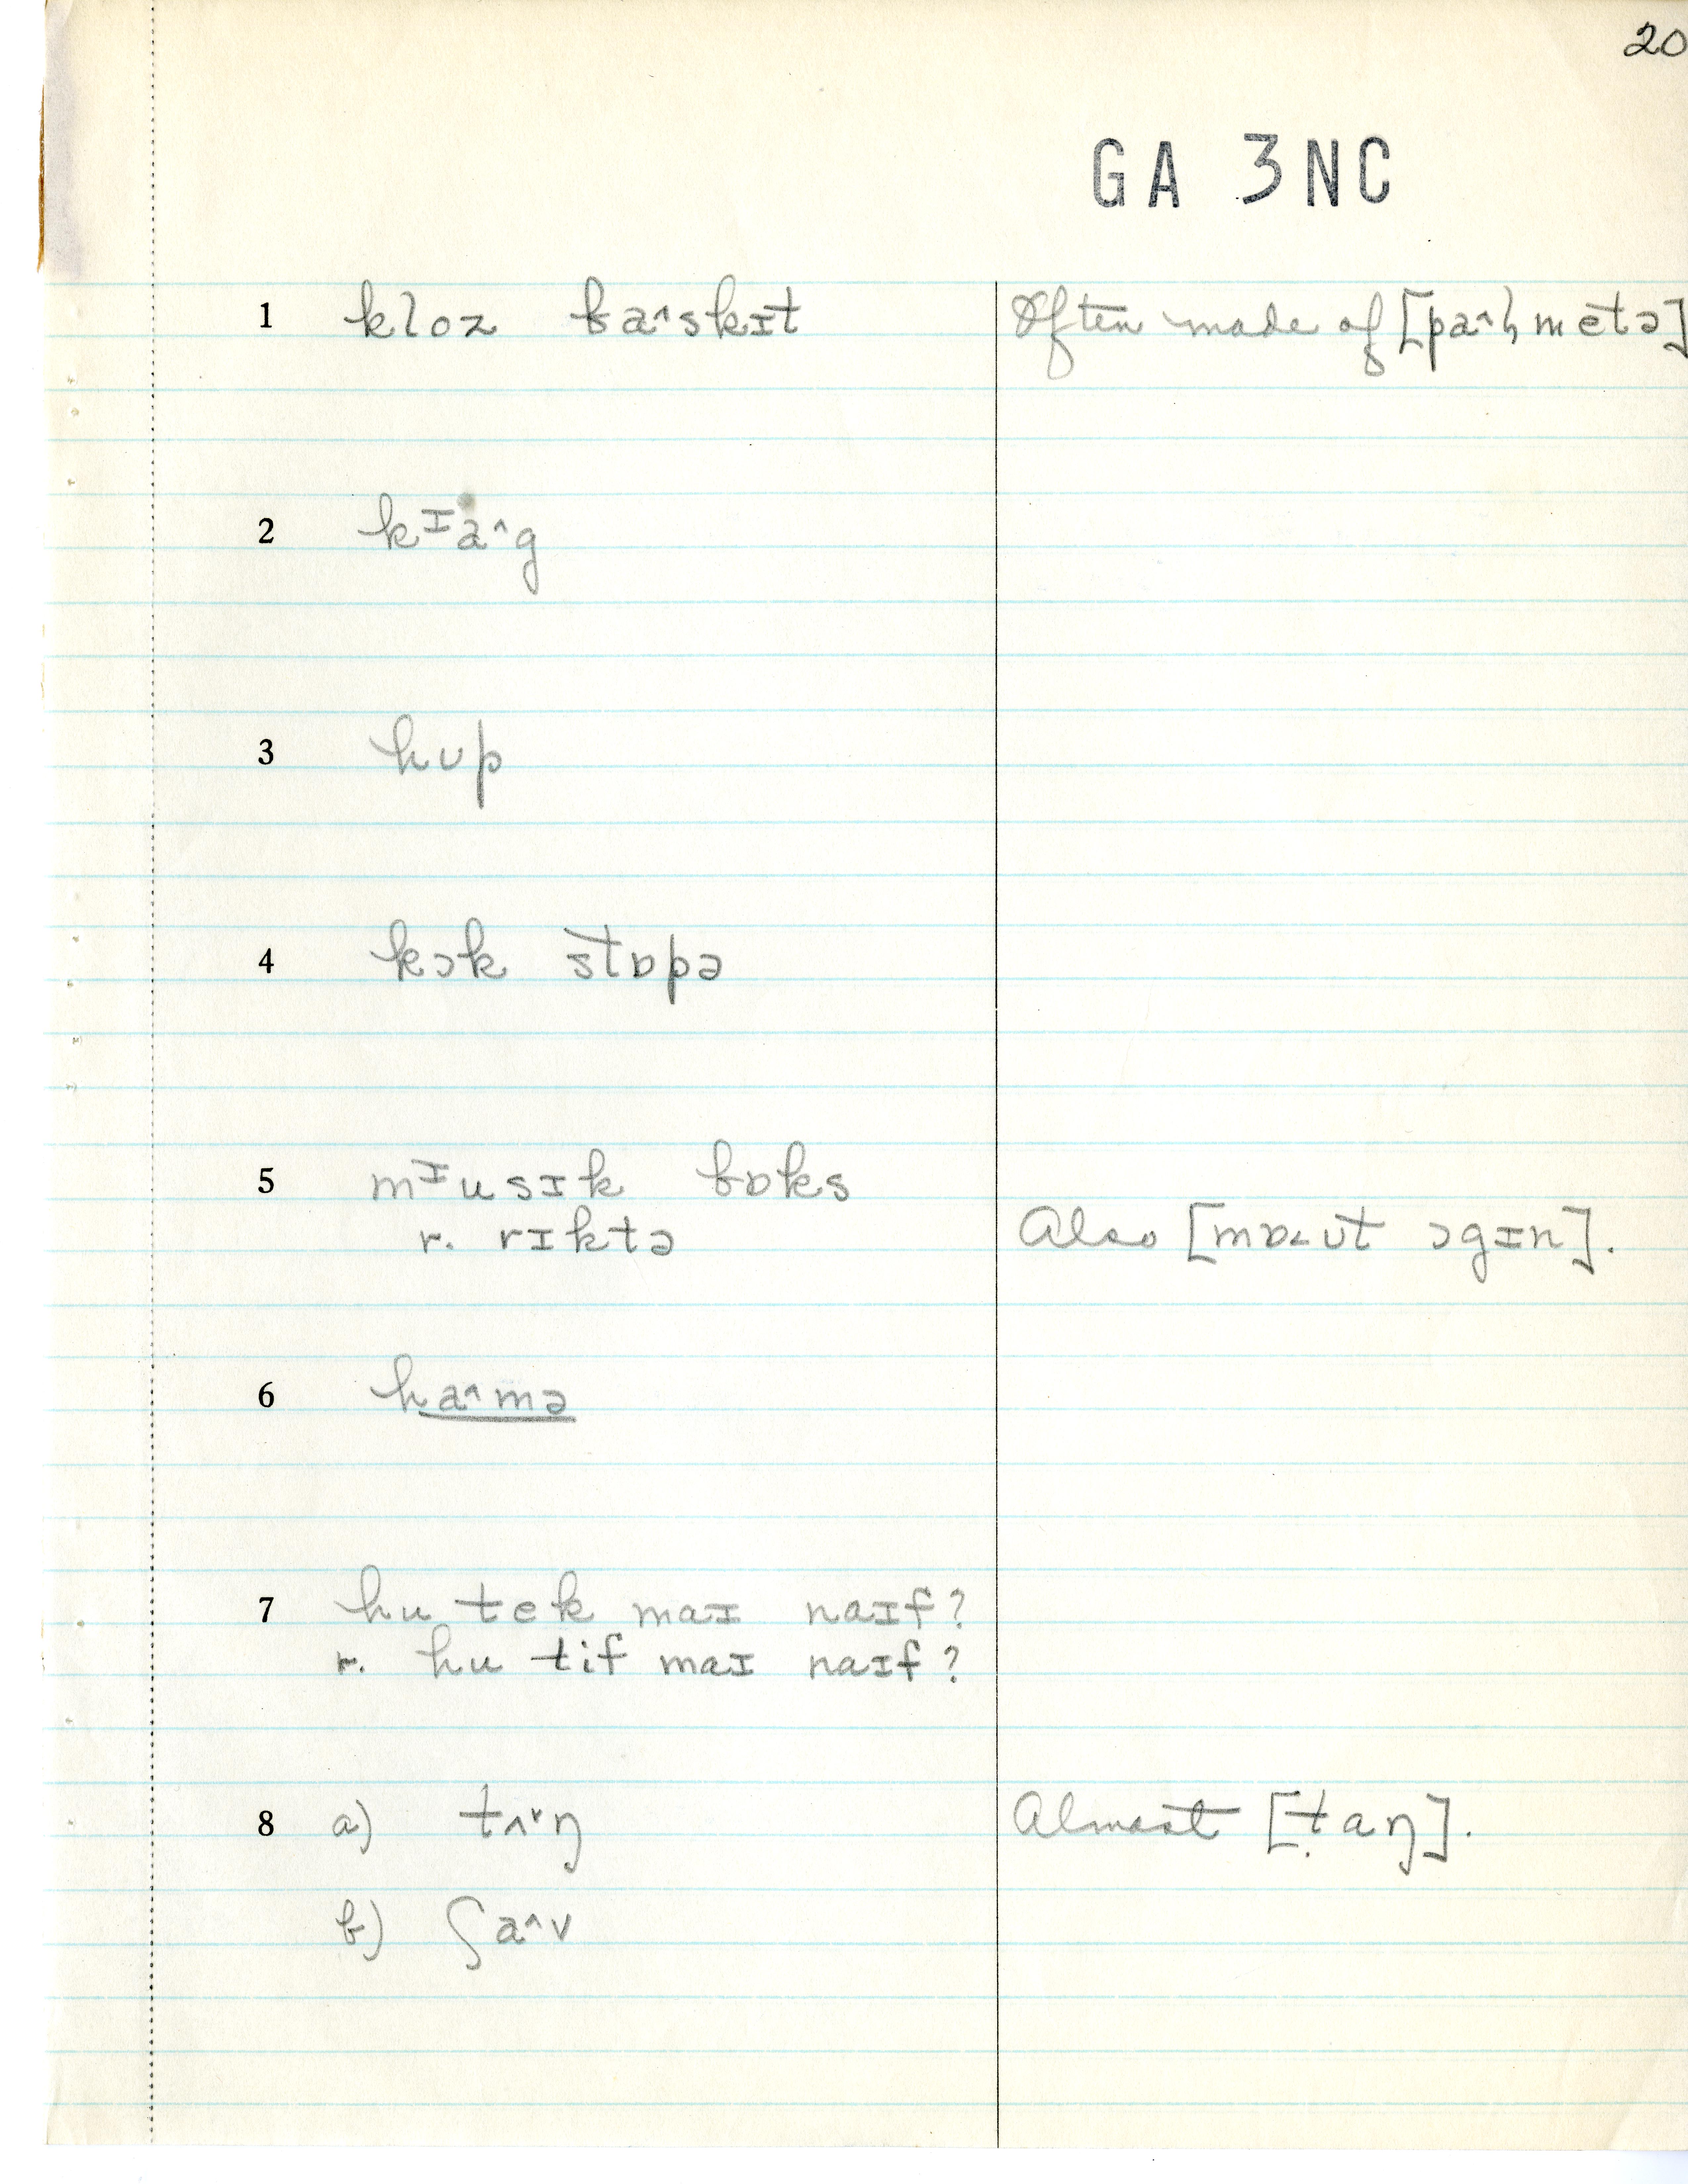 20
GA 3NC
1 kloz ba^skɪt Often made of [pa^lmetə]
2 kᶦa^g
3 hʊp
4 kɔk stɒpə
5 mᶦusɪk bɒks
r. rɪktə Also [mɒ˂ʊt ɔgɪn].
6 ha^mə
7 hu tek maɪ naɪf?
r. hu tif maɪ naɪf?
8 a) tʌ˅ŋ Almost [ṭaŋ].
b) ʃa^v